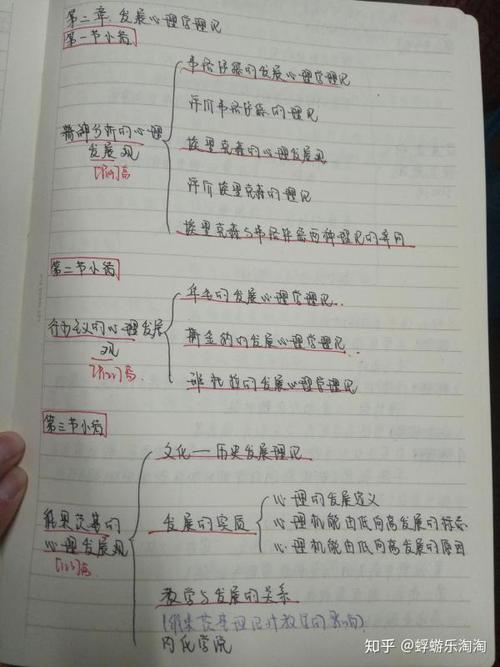 第二章 发展心理学理论
第一节小节
弗洛伊德的发展心理学理论
评价弗洛伊德的理论
精神分析的心理
发展观
埃里克森的心理发展观
评价埃里克森的理论
埃里克森与弗洛伊德两种理论的异同
第二节小节
华生的发展心理学理论
行为主义的心理发展
观
斯金纳的发展心理学理论
班杜拉的发展心理学理论
第三节小节
文化—历史发展理论
维果茨基的
心理发展观
发展的实质
心理的发展定义
心理机能由低向高发展的标志
心理机能由低向高发展的原因
教学与发展的关系
内化学说
知乎 @蜉蝣乐淘淘